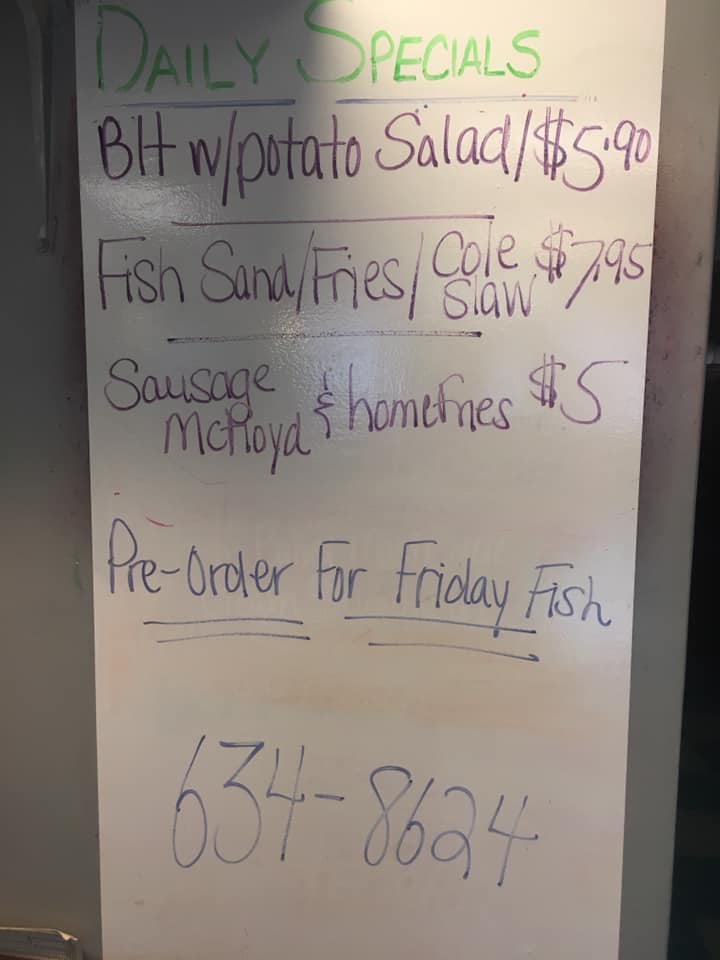 DAILY SPECIALS
Blt w/potato Salad/$5.90
Fish Sand/Fries/Cole Slaw $7.95
Sausage McFloyd & homefries $5
Pre-Order For Friday Fish
634-8624